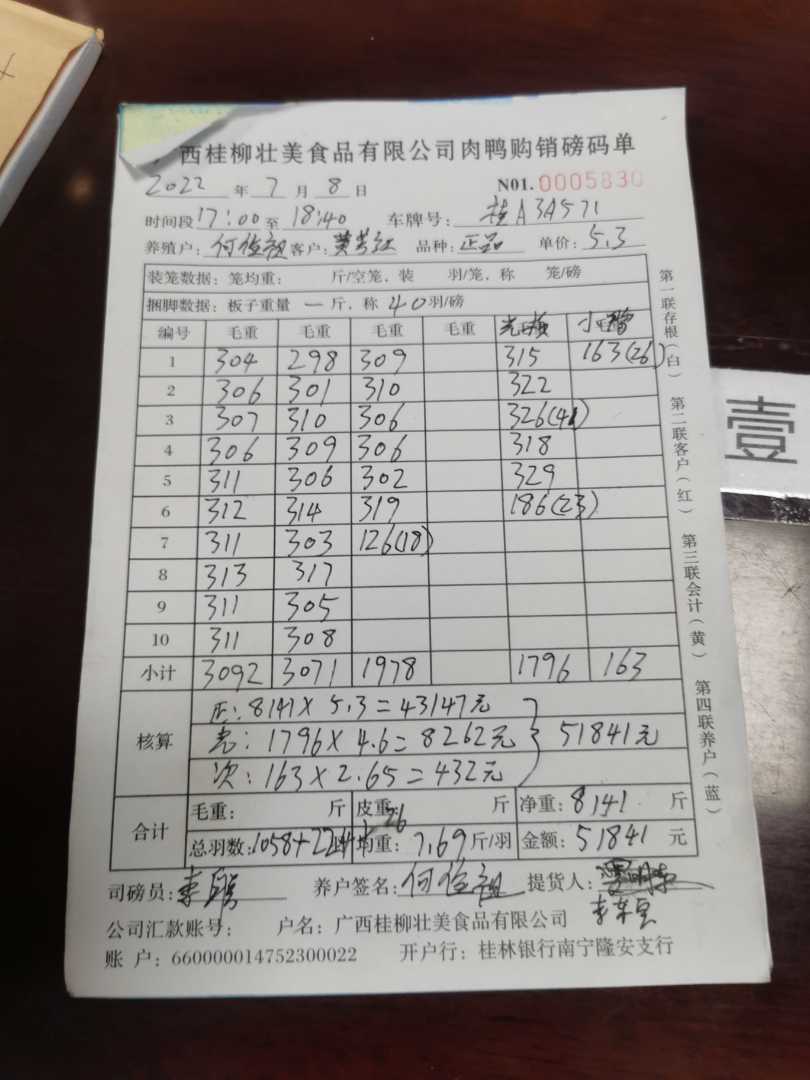 西桂柳壮美食品有限公司肉鸭购销磅码单
2022 年 7 月 8 日 N01. 0005830
时间段 17:00 至 18:40 车牌号: 桂A3A571
养殖户: 何俊 客户: 黄 品种: 正品 单价: 5.3
装笼数据: 笼均重: 斤/空笼, 装 羽/笼, 称 笼/磅
捆脚数据: 板子重量 一 斤, 称 40 羽/磅
编号 毛重 毛重 毛重 毛重 小
1 304 298 309 315 163(26)
2 306 301 310 322
3 307 310 306 326(41)
4 306 309 306 318
5 311 306 302 329
6 312 314 319 186(23)
7 311 303 126(18)
8 313 317
9 311 305
10 311 308
小计 3092 3071 1978 1796 163
核算
正: 8141 × 5.3 = 43147元
光: 1796 × 4.6 = 8262元 51841元
次: 163 × 2.65 = 432元
合计
毛重: 斤 皮重: 斤 净重: 8141 斤
26
总羽数: 1058+224+ 均重: 7.69 斤/羽 金额: 51841 元
司磅员: 李 养户签名: 何俊 提货人:
李
公司汇款账号: 户名: 广西桂柳壮美食品有限公司
账 户: 660000014752300022 开户行: 桂林银行南宁隆安支行
第一联存根(白) 第二联客户(红) 第三联会计(黄) 第四联养户(蓝)
壹